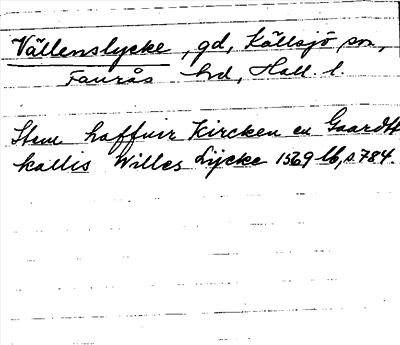 Vällenslycke, gd, Källsjö sn,
Faurås hd, Hall. l.
Item haffuir Kircken en Gaardtt
kallis Willes Lijcke 1569 lb, s. 784.